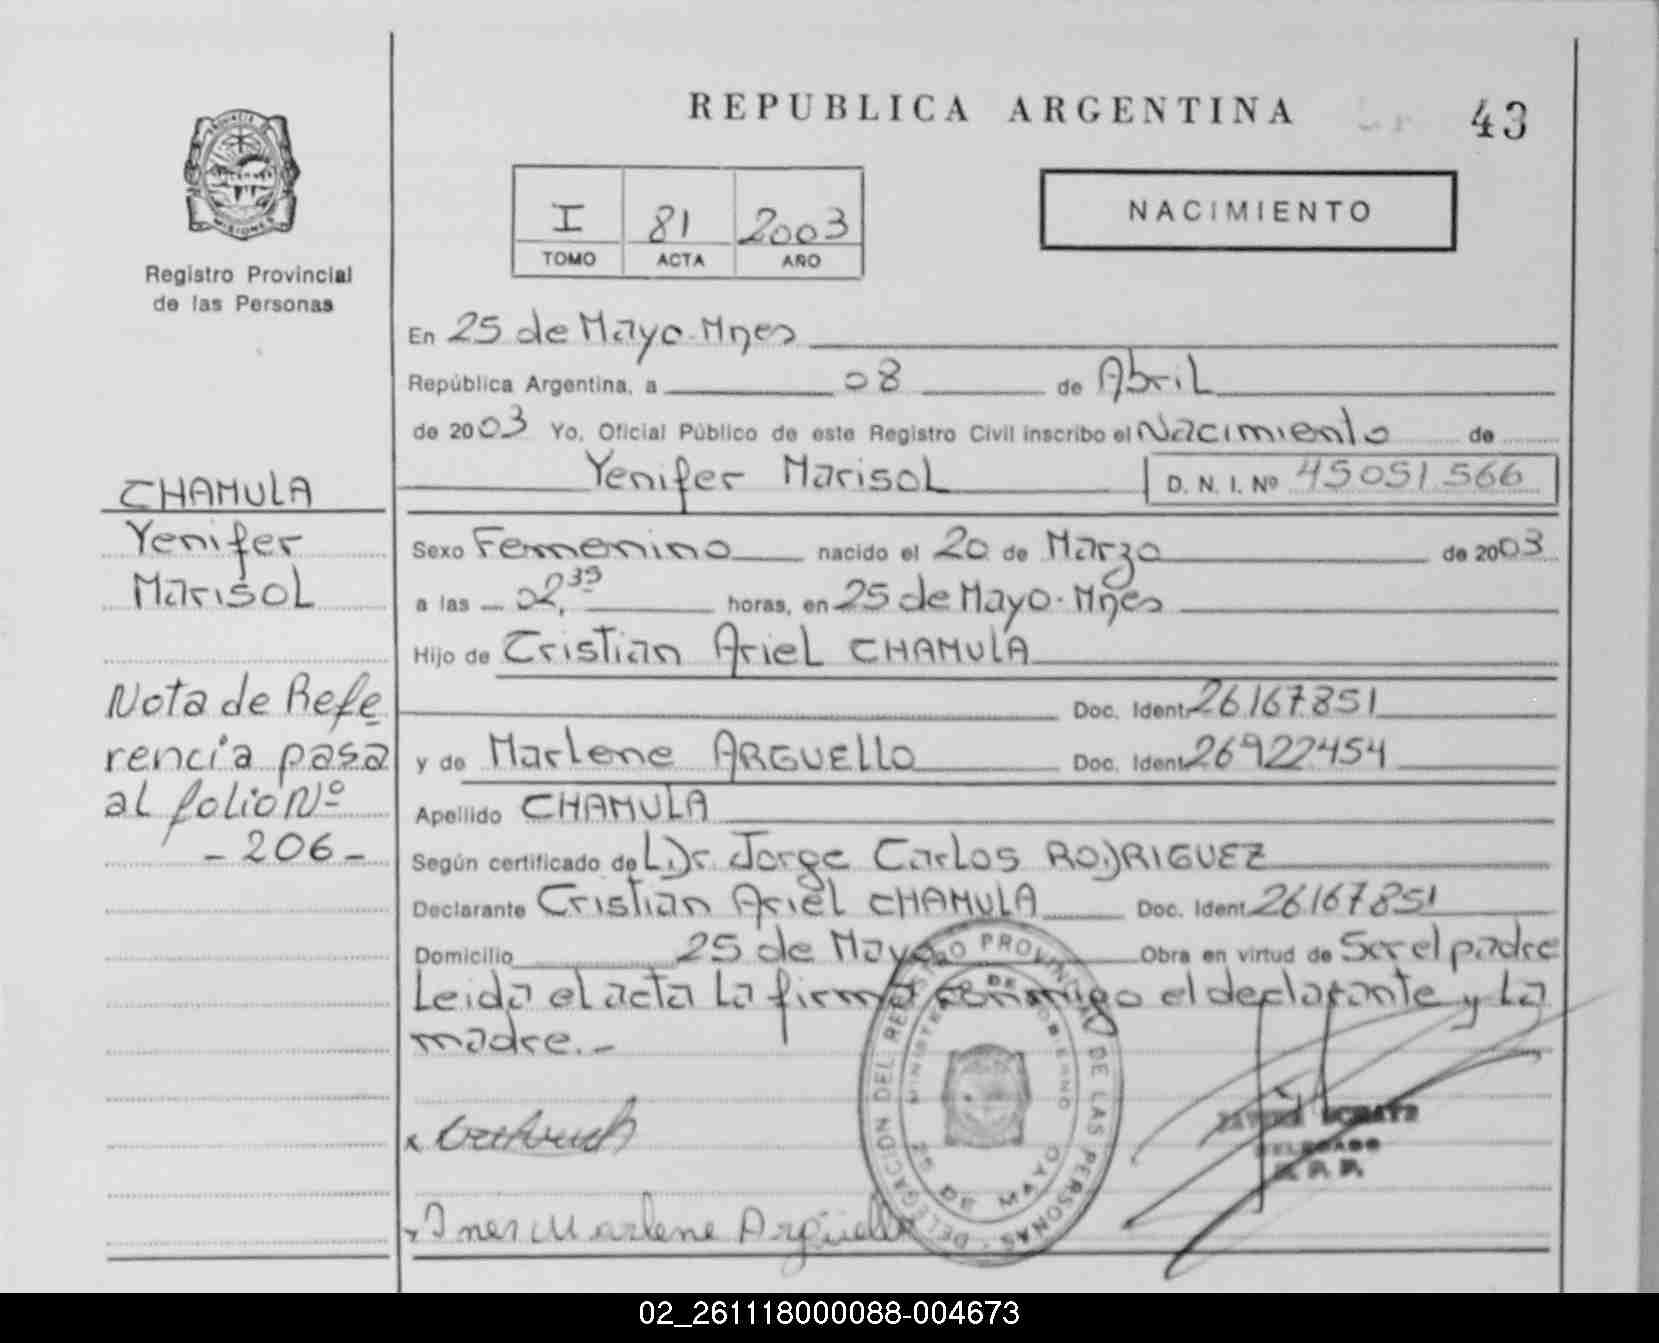 REPUBLICA ARGENTINA
43
PROVINCIA DE MISIONES
Registro Provincial
de las Personas
I 81 2003
TOMO ACTA AÑO
NACIMIENTO
En 25 de Mayo-Mnes
República Argentina, a 08 de Abril
de 2003 Yo, Oficial Público de este Registro Civil inscribo el Nacimiento de
Yenifer Marisol D. N. I. Nº 45051566
Sexo Femenino nacido el 20 de Marzo de 2003
a las 02,35 horas, en 25 de Mayo-Mnes
Hijo de Cristian Ariel CHAMULA
Doc. Ident. 26167851
y de Marlene ARGUELLO Doc. Ident. 26922454
Apellido CHAMULA
Según certificado de L.Dr. Jorge Carlos RODRIGUEZ
Declarante Cristian Ariel CHAMULA Doc. Ident. 26167851
Domicilio 25 de Mayo Obra en virtud de Ser el padre
Leida el acta La firma conmigo el declarante y La
madre.-
CHAMULA
Yenifer
Marisol
Nota de Refe
rencia pasa
al folio Nº
- 206 -
x
x Ines Marlene Argüello
DELEGACION DEL REGISTRO PROVINCIAL DE LAS PERSONAS
MINISTERIO DE GOBIERNO
25 DE MAYO
DELEGADO
R. P. P.
02_261118000088-004673